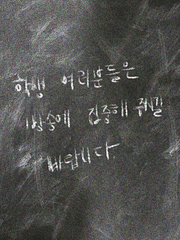 학생 여러분들은
방송에 집중해 주길
바랍니다.